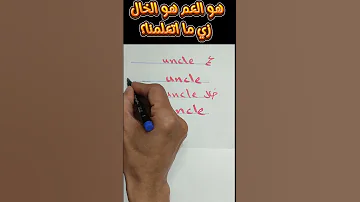 هو العم هو الخال
زي ما اتعلمناه
uncle
uncle
uncle
uncle